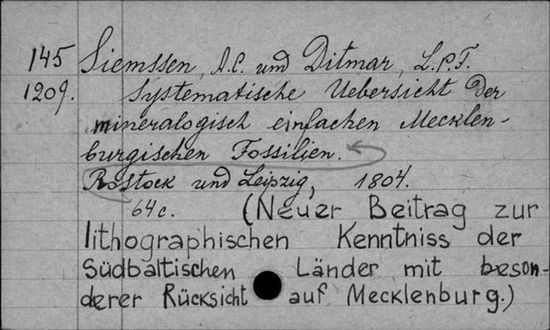 145 Siemssen, A.C. und Ditmar, L.P.F.
1209. Systematische Uebersicht der
mineralogisch einfachen Mecklen-
burgischen Fossilien.
Rostock und Leipzig, 1804.
64c. (Neuer Beitrag zur
lithographischen Kenntniss der
Südbaltischen Länder mit beson-
derer Rücksicht auf Mecklenburg.)